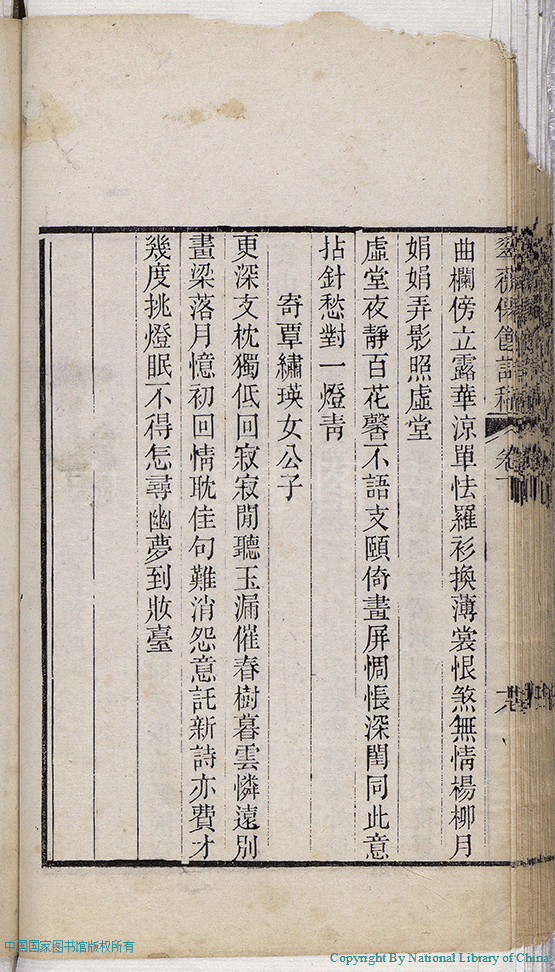 曲欄傍立露華涼單怯羅衫換薄裳恨煞無情楊柳月
娟娟弄影照虛堂
虛堂夜靜百花馨不語支頤倚畫屏惆悵深閨同此意
拈針愁對一燈靑
寄覃繡瑛女公子
更深支枕獨低回寂寂閒聽玉漏催春樹暮雲憐遠別
畫梁落月憶初回情耽佳句難消怨意託新詩亦費才
幾度挑燈眠不得怎尋幽夢到妝臺
中国国家图书馆版权所有
Copyright By National Library of China